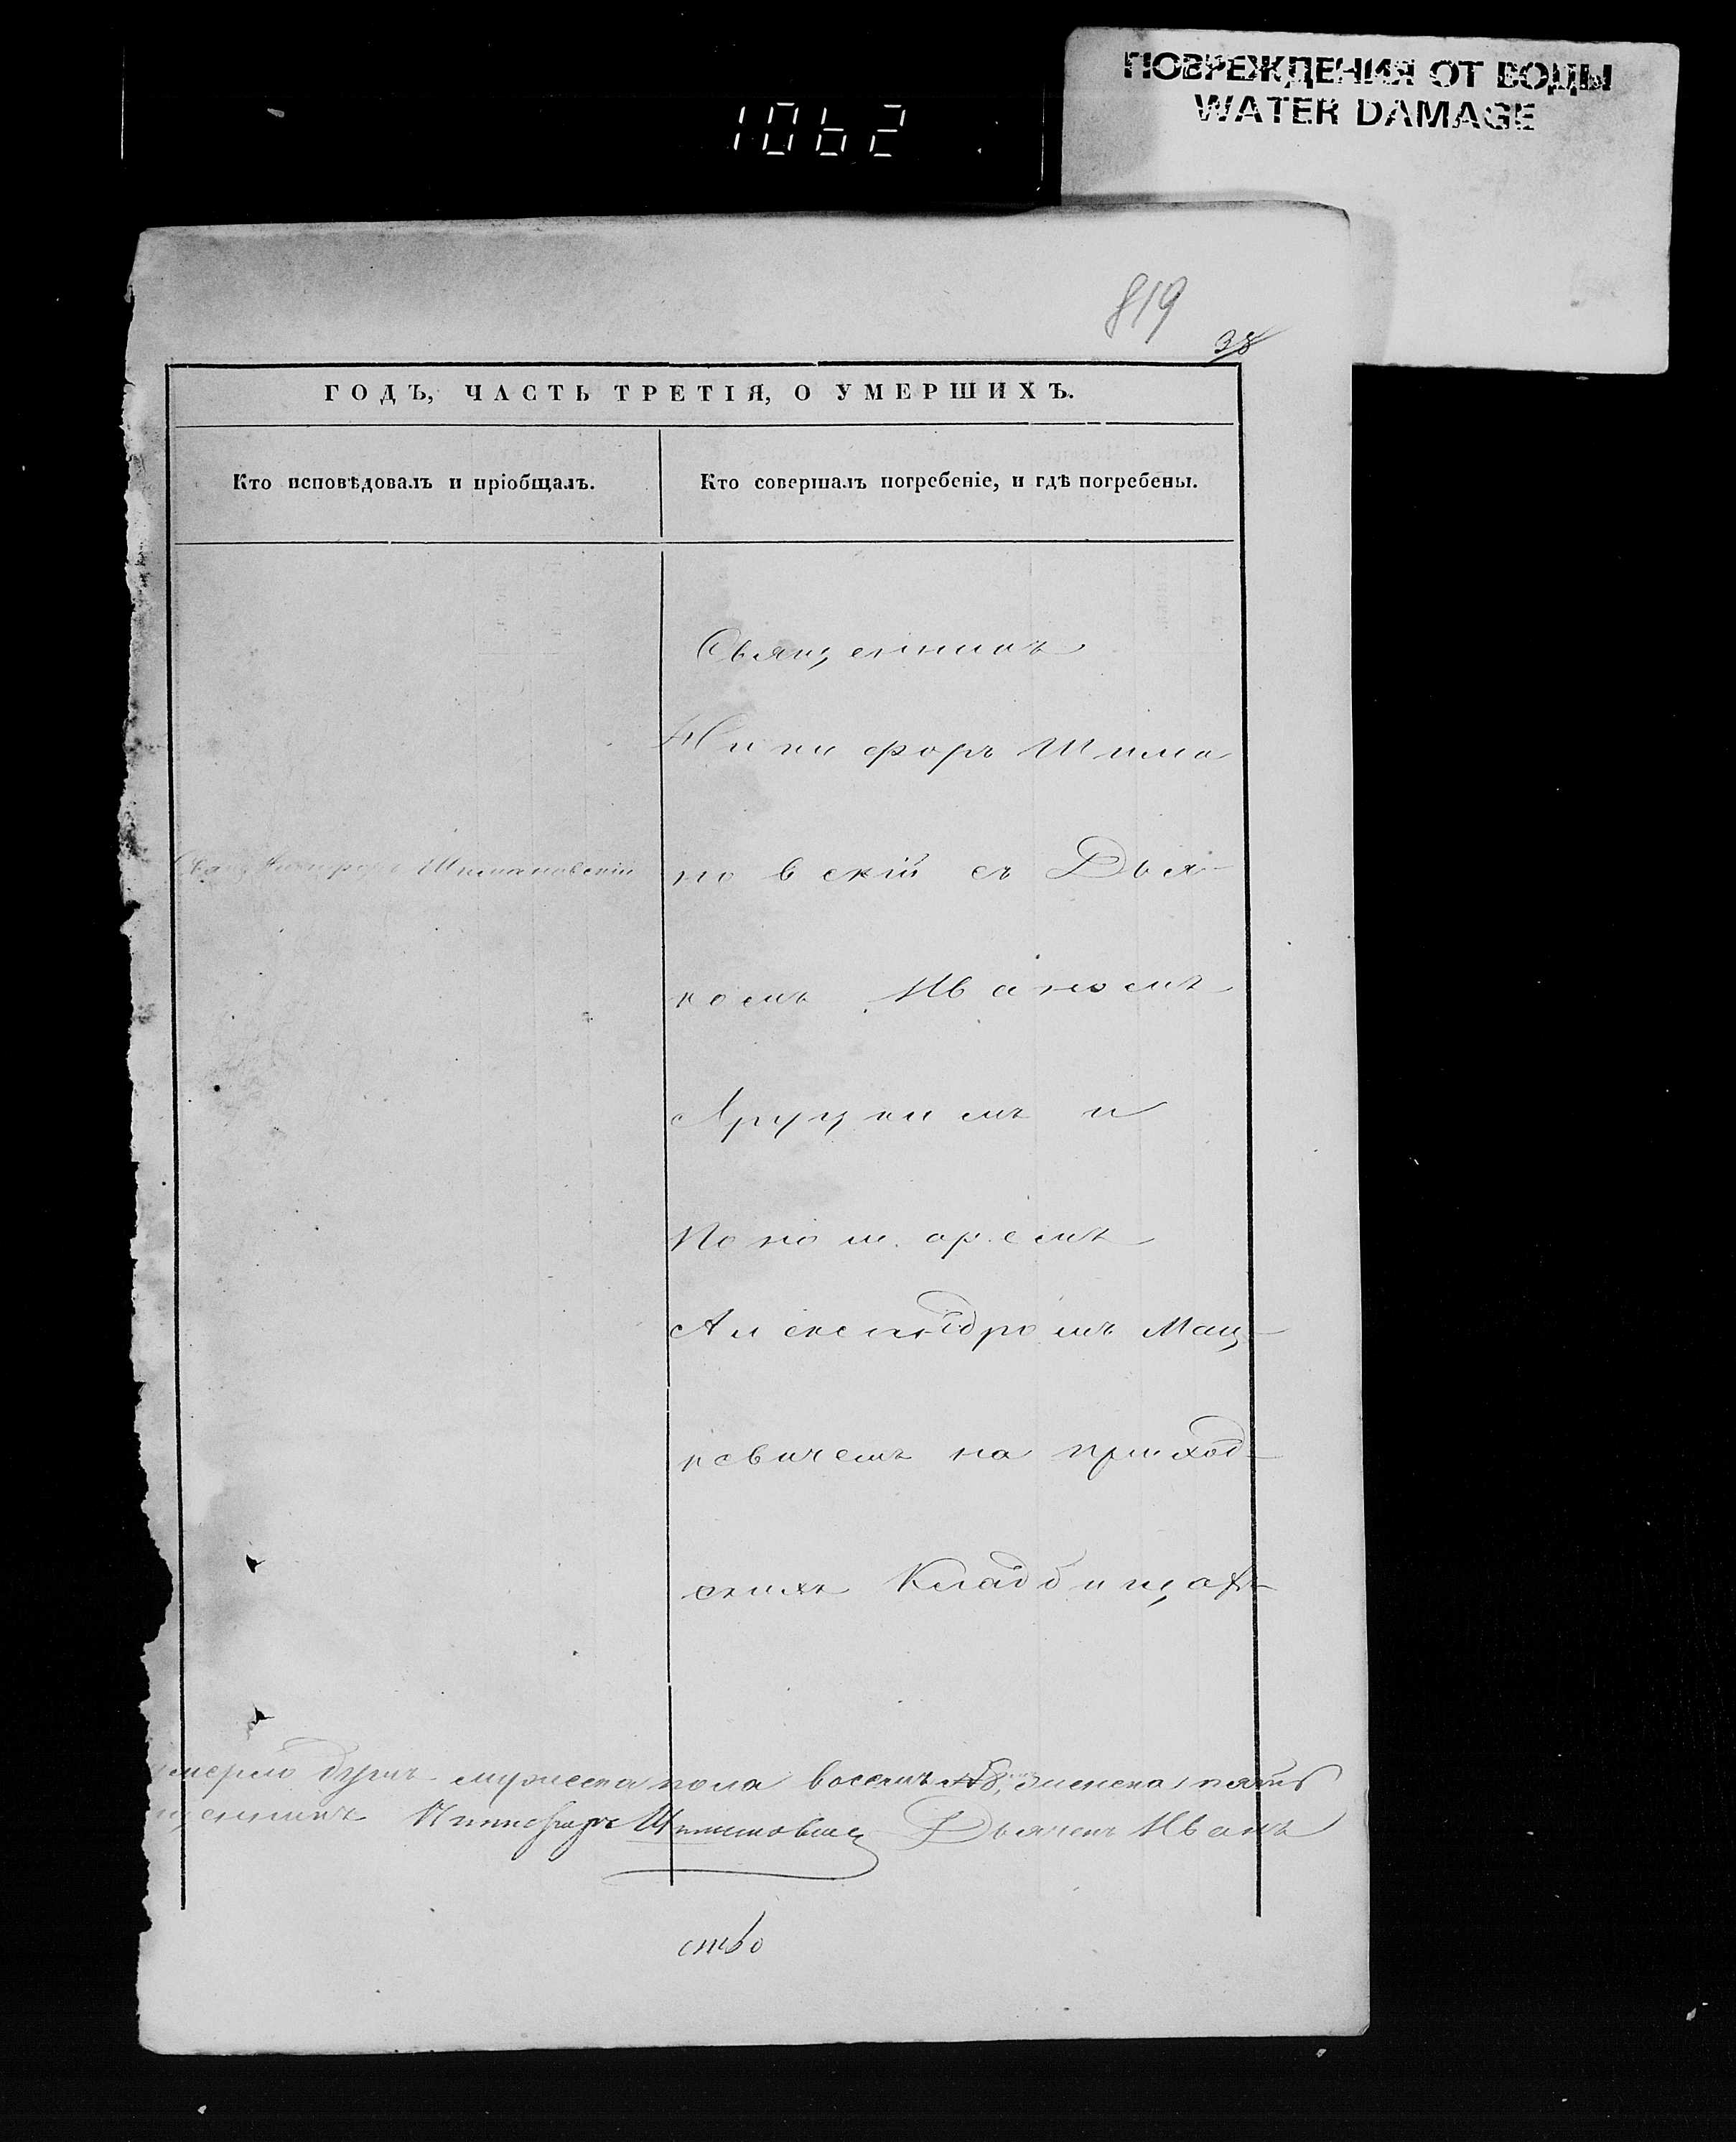 ПОВРЕЖДЕНИЯ ОТ ВОДЫ
WATER DAMAGE
1062
819
38
ГОДЪ, ЧАСТЬ ТРЕТІЯ, О УМЕРШИХЪ.
Кто исповѣдовалъ и пріобщалъ.
Кто совершалъ погребеніе, и гдѣ погребены.
Священникъ
Никифоръ Шима
новскій съ Дья-
Свящ Никифоръ Шимановскій
комъ Иваномъ
Яруцкимъ и
Пономаремъ
Александромъ Мац-
кевичемъ на приход-
скихъ Кладбищах
умерло душъ мужеска пола восемь 8, женска пять
щенникъ Никифоръ Шимановскій Дьяконъ Иванъ